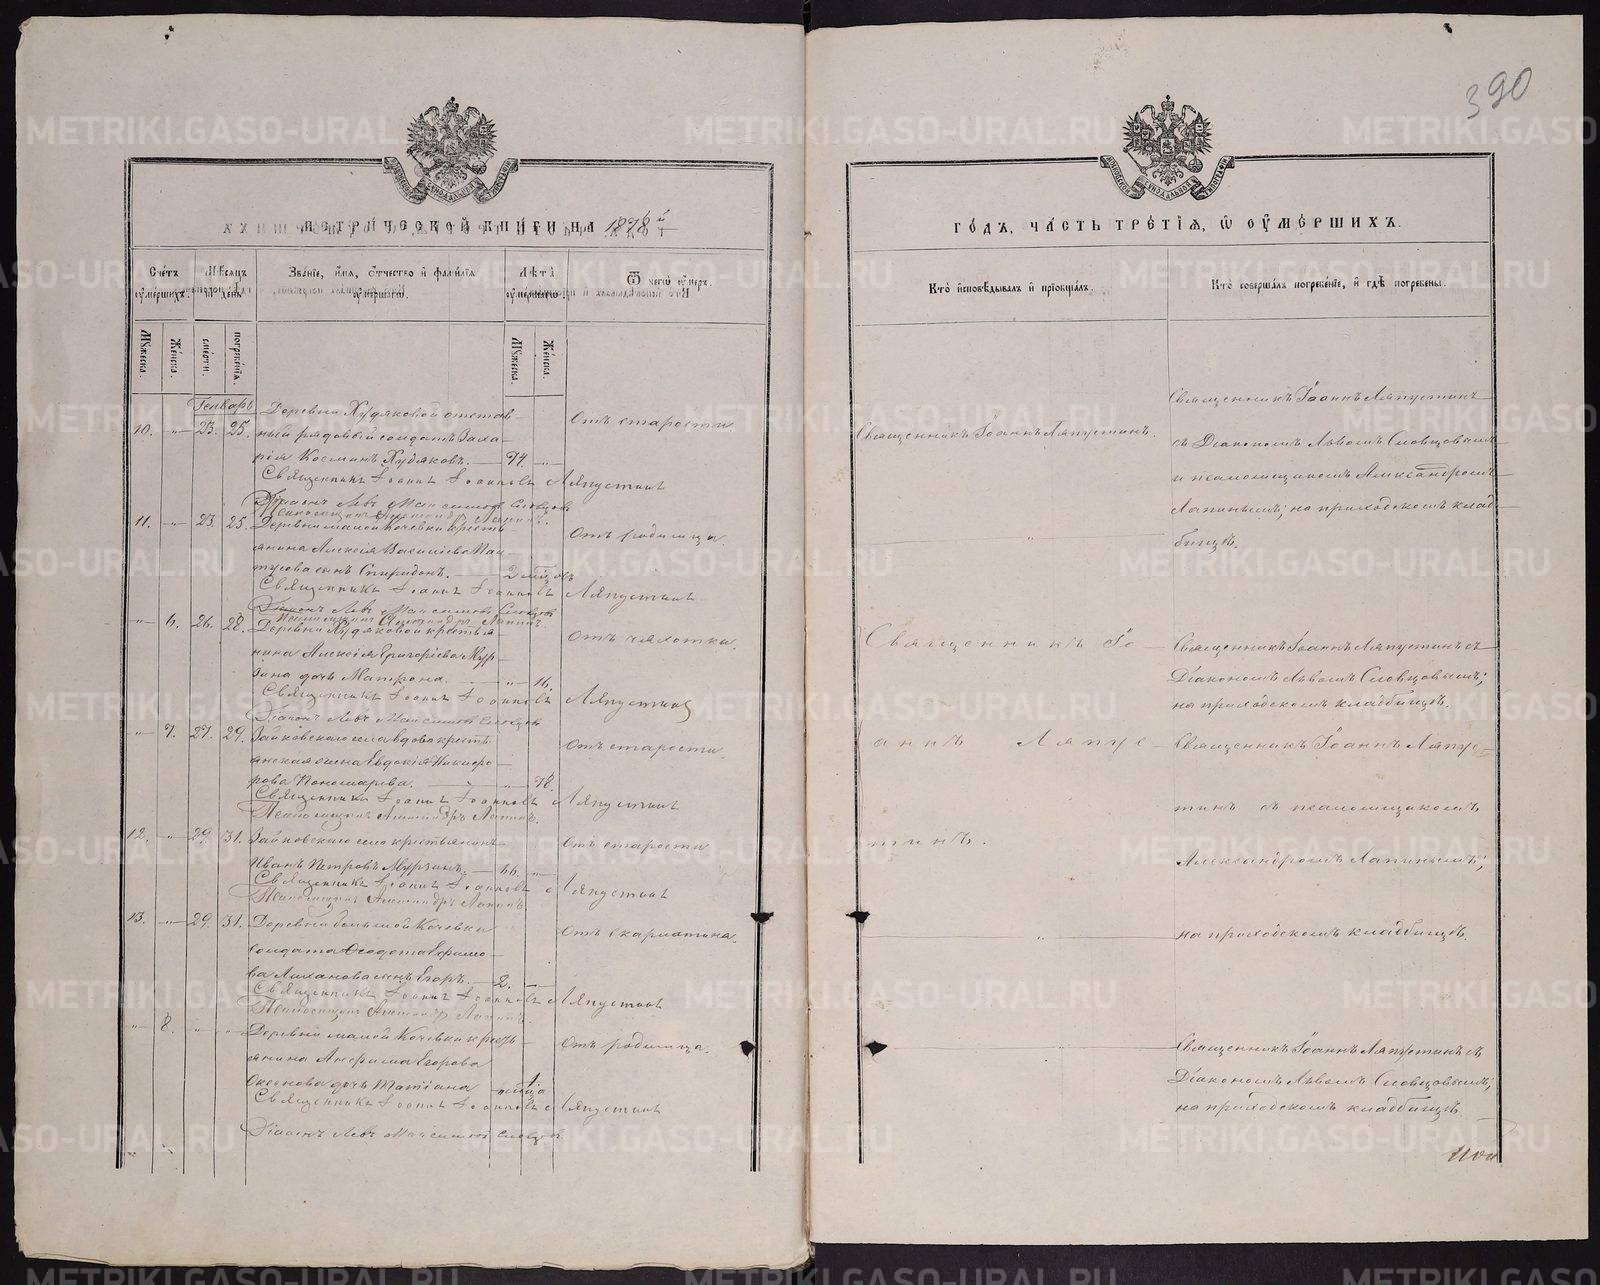 390
МЕТРИЧЕСКОЙ КНИГИ НА 1878й
ГОДЪ, ЧАСТЬ ТРЕТІЯ, Ѿ ОУМЕРШИХЪ.
Счетъ оумершихъ.
Мѣсяцъ и день
Званіе, имя, отчество и фамилія оумершаго.
Лѣта оумершаго
Ѿ чегѡ оумеръ.
Кто исповѣдывалъ и пріобщалъ.
Кто совершалъ погребеніе, и гдѣ погребены.
Мꙋжеска.
Женска.
смерти.
погребенія.
Мꙋжеска.
Женска.
Генварь
10. " 23. 25. Деревни Худяковой отстав-
ный рядовый солдатъ Заха-
рія Косминъ Худяковъ. 74. "
Отъ старости.
Священникъ Іоаннъ Ляпустинъ.
Священникъ Іоаннъ Ляпустинъ
съ Діакономъ Львомъ Словцовымъ
и псаломщикомъ Александромъ
Лапинымъ; на приходскомъ клад-
бищѣ.
Священникъ Іоаннъ Іоанновъ Ляпустинъ
Діаконъ Левъ Максимовъ Словцовъ
Псаломщикъ Александръ Лапинъ.
11. " 23. 25. Деревни малой Кочевки кресть
янина Алексія Василіева
сынъ Спиридонъ. 2 мѣц
Отъ родимца.
"
Священникъ Іоаннъ Іоанновъ Ляпустинъ
Діаконъ Левъ Максимовъ Словцовъ
Псаломщикъ Александръ Лапинъ
" 6. 26. 28. Деревни Худяковой крестья
нина Алексія Григоріева Мур-
зина дочь Матрона. " 16.
Отъ чахотки.
Священникъ Іо-
Священникъ Іоаннъ Ляпустинъ съ
Діакономъ Львомъ Словцовымъ;
на приходскомъ кладбищѣ.
Священникъ Іоаннъ Іоанновъ Ляпустинъ
Діаконъ Левъ Максимовъ Словцовъ
" 7. 27. 29. Зайковскаго села вдова кресть
янская жена Евдокія Никифо-
рова Пономарева. " 78.
Отъ старости
аннъ Ляпус-
Священникъ Іоаннъ Ляпус-
тинъ съ псаломщикомъ
Священникъ Іоаннъ Іоанновъ Ляпустинъ
Псаломщикъ Александръ Лапинъ.
12. " 29. 31. Зайковскаго села крестьянинъ
Иванъ Петровъ Мурзинъ. 66. "
Отъ старости
тинъ.
Александромъ Лапинымъ;
Священникъ Іоаннъ Іоанновъ Ляпустинъ
Псаломщикъ Александръ Лапинъ.
13. " 29. 31. Деревни большой Кочевки
солдата Ѳеодота Ефимо-
ва Лиханова сынъ Егоръ. 2. "
Отъ скарлатина.
"
на приходскомъ кладбищѣ.
Священникъ Іоаннъ Іоанновъ Ляпустинъ
Псаломщикъ Александръ Лапинъ
" 8. " " Деревни малой Кочевки кресть-
янина Анфима Егорова
дочь Татіана 1 мѣца
Отъ родимца.
Священникъ Іоаннъ Ляпустинъ съ
Діакономъ Львомъ Словцовымъ;
на приходскомъ кладбищѣ.
Священникъ Іоаннъ Іоанновъ Ляпустинъ
Діаконъ Левъ Максимовъ Словцовъ
METRIKI.GASO-URAL.RU